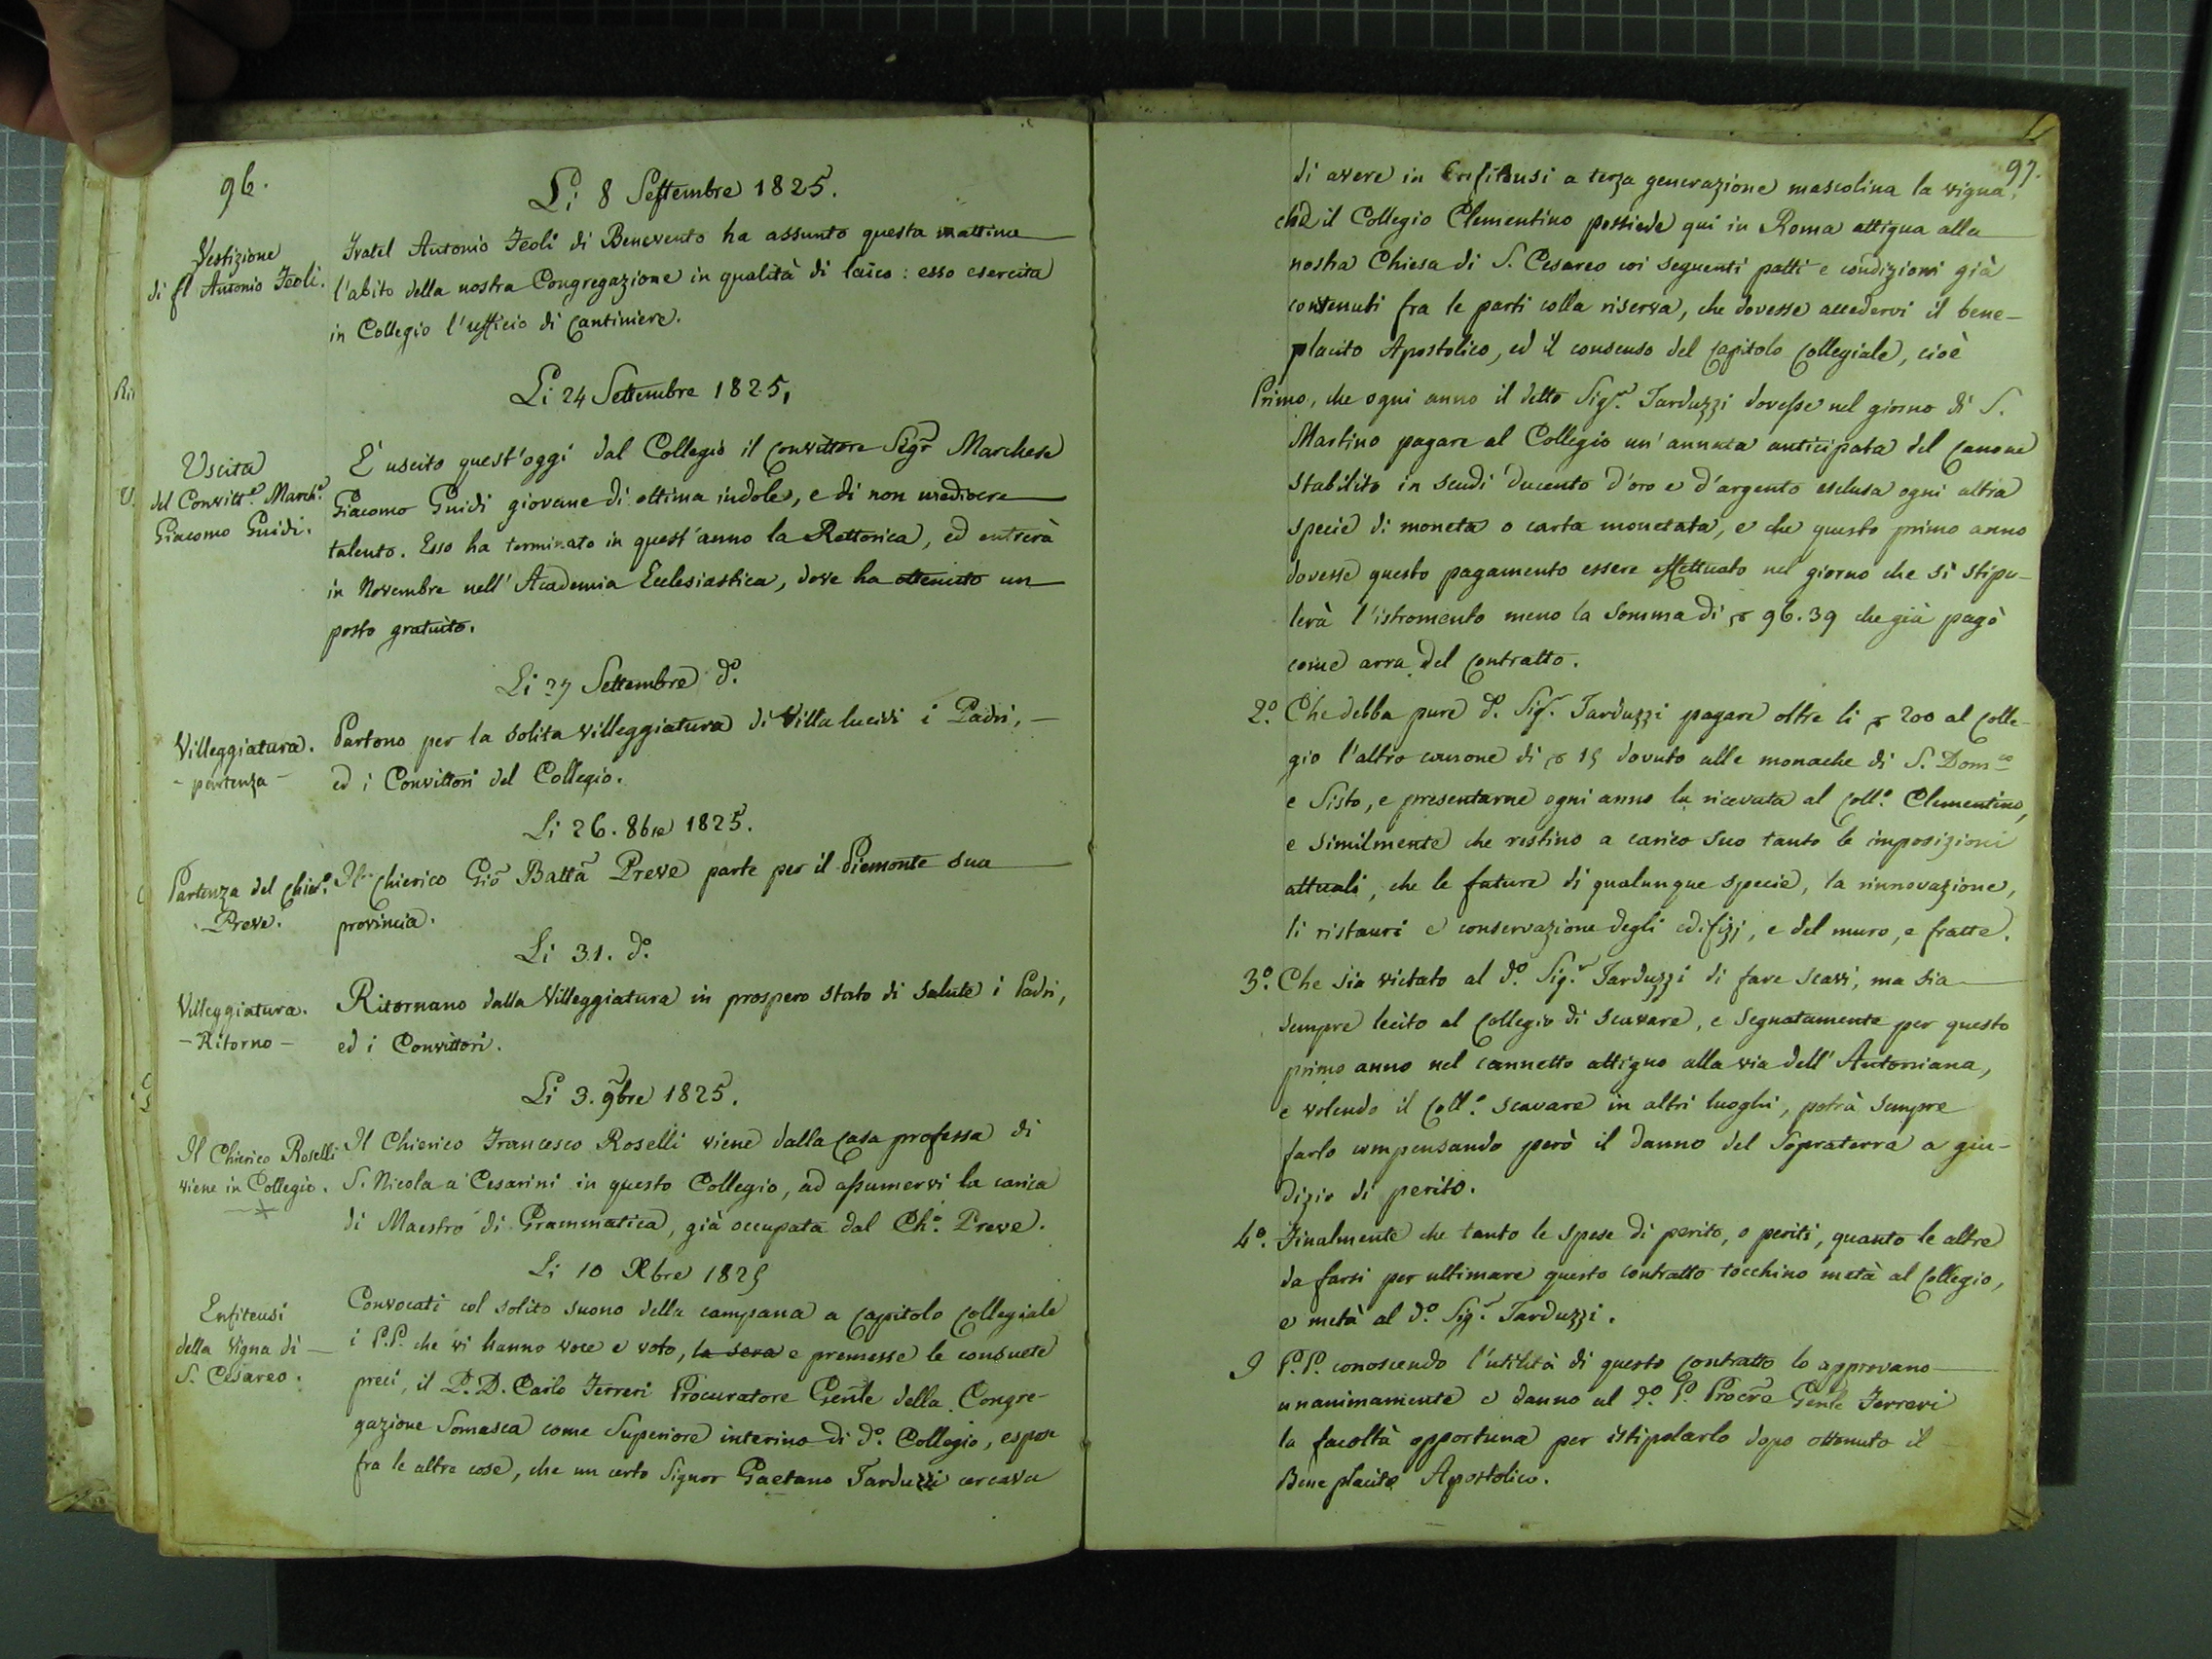 96.
Li 8 Settembre 1825.
Vestizione
di fl Antonio Feoli.
Fratel Antonio Feoli di Benevento ha assunto questa mattina
l'abito della nostra Congregazione in qualità di laico: esso esercita
in Collegio l'ufficio di Cantiniere.
Li 24 Settembre 1825,
Uscita
del Convitt.e March.e
Giacomo Guidi.
È uscito quest'oggi dal Collegio il Convittore Sigr Marchese
Giacomo Guidi giovane di ottima indole, e di non mediocre
talento. Esso ha terminato in quest'anno la Rettorica, ed entrerà
in Novembre nell'Academia Ecclesiastica, dove ha ottenuto un
posto gratuito.
Li 27 Settembre d.o
Villeggiatura.
- partenza -
Partono per la solita villeggiatura di Villa lucidi i Padri,
ed i Convittori del Collegio.
Li 26. 8bre 1825.
Partenza del Chier.o
Preve.
Il Chierico Gio Batta Preve parte per il Piemonte sua
provincia.
Li 31. d.o
Villeggiatura.
- Ritorno -
Ritornano dalla Villeggiatura in prospero stato di salute i Padri,
ed i Convittori.
Li 3. 9bre 1825.
Il Chierico Roselli
viene in Collegio.
Il Chierico Francesco Roselli viene dalla Casa professa di
S. Nicola a' Cesarini in questo Collegio, ad assumervi la carica
di Maestro di Grammatica, già occupata dal Ch.o Preve.
Li 10 Xbre 1825
Enfiteusi
della Vigna di
S. Cesareo.
Convocati col solito suono della campana a Capitolo Collegiale
i P.P. che vi hanno voce e voto, la sera e premesse le consuete
preci, il P. D. Carlo Ferreri Procuratore Genle della Congre-
gazione Somasca come Superiore interino di d.o Collegio, espose
fra le altre cose, che un certo Signor Gaetano Tarduzzi cercava
97.
di avere in Enfiteusi a terza generazione mascolina la vigna,
che il Collegio Clementino possiede qui in Roma attigua alla
nostra Chiesa di S. Cesareo coi seguenti patti e condizioni già
convenuti fra le parti colla riserva, che dovesse accedervi il bene-
placito Apostolico, ed il consenso del Capitolo Collegiale, cioè
Primo, che ogni anno il detto Sigr. Tarduzzi dovesse nel giorno di S.
Martino pagare al Collegio un'annata anticipata del Canone
stabilito in scudi ducento d'oro e d'argento esclusa ogni altra
specie di moneta o carta monetata, e che questo primo anno
dovesse questo pagamento essere effettuato nel giorno che si stipu-
lerà l'istromento meno la somma di 96.39 che già pagò
come arra del Contratto.
2.o Che debba pure d.o Sigr. Tarduzzi pagare oltre li 200 al Colle-
gio l'altro canone di 15 dovuto alle monache di S. Dom.co
e Sisto, e presentarne ogni anno la ricevuta al Coll.o Clementino,
e similmente che restino a carico suo tanto le imposizioni
attuali, che le future di qualunque specie, la rinnovazione,
li ristauri e conservazione degli edifizj, e del muro, e fratte.
3.o Che sia vietato al d.o Sigr. Tarduzzi di fare scavi, ma sia
sempre lecito al Collegio di scavare, e segnatamente per questo
primo anno nel cannetto attiguo alla via dell'Antoniana,
e volendo il Coll.o scavare in altri luoghi, potrà sempre
farlo compensando però il danno del Sopraterra a giu-
dizio di perito.
4.o Finalmente che tanto le spese di perito, o periti, quanto le altre
da farsi per ultimare questo contratto tocchino metà al Collegio,
e metà al d.o Sigr. Tarduzzi.
I P.P. conoscendo l'utilità di questo Contratto lo approvano
unanimamente e danno al d.o P. Procre Genle Ferreri
la facoltà opportuna per istipolarlo dopo ottenuto il
Beneplacito Apostolico.